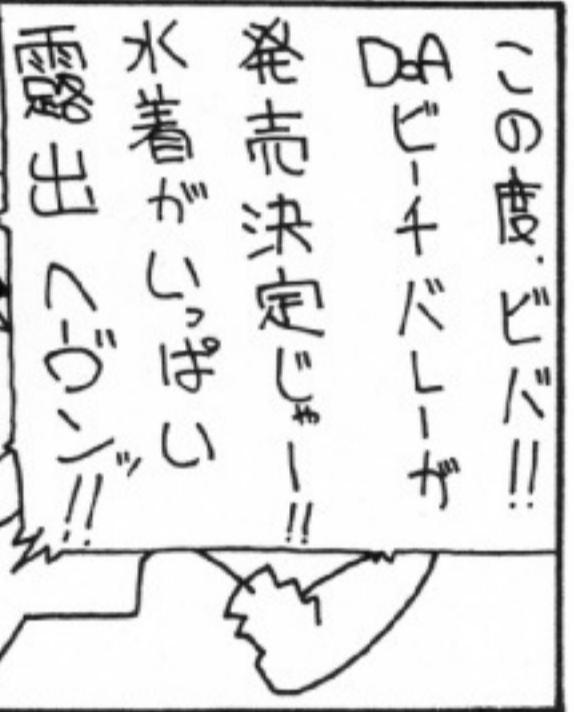 この度、ビバ!!
DOAビーチバレーが
発売決定じゃー!!
水着がいっぱい
露出 ヘヴンッ!!